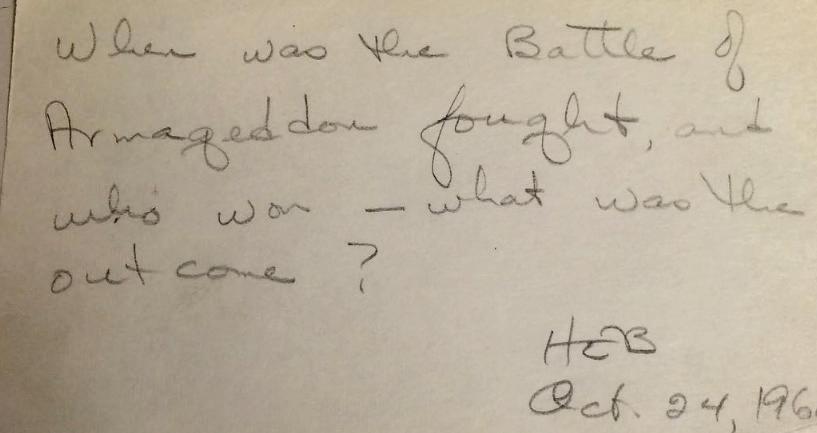 When was the Battle of
Armageddon fought, and
who won – what was the
outcome?
HEB
Oct. 24, 196